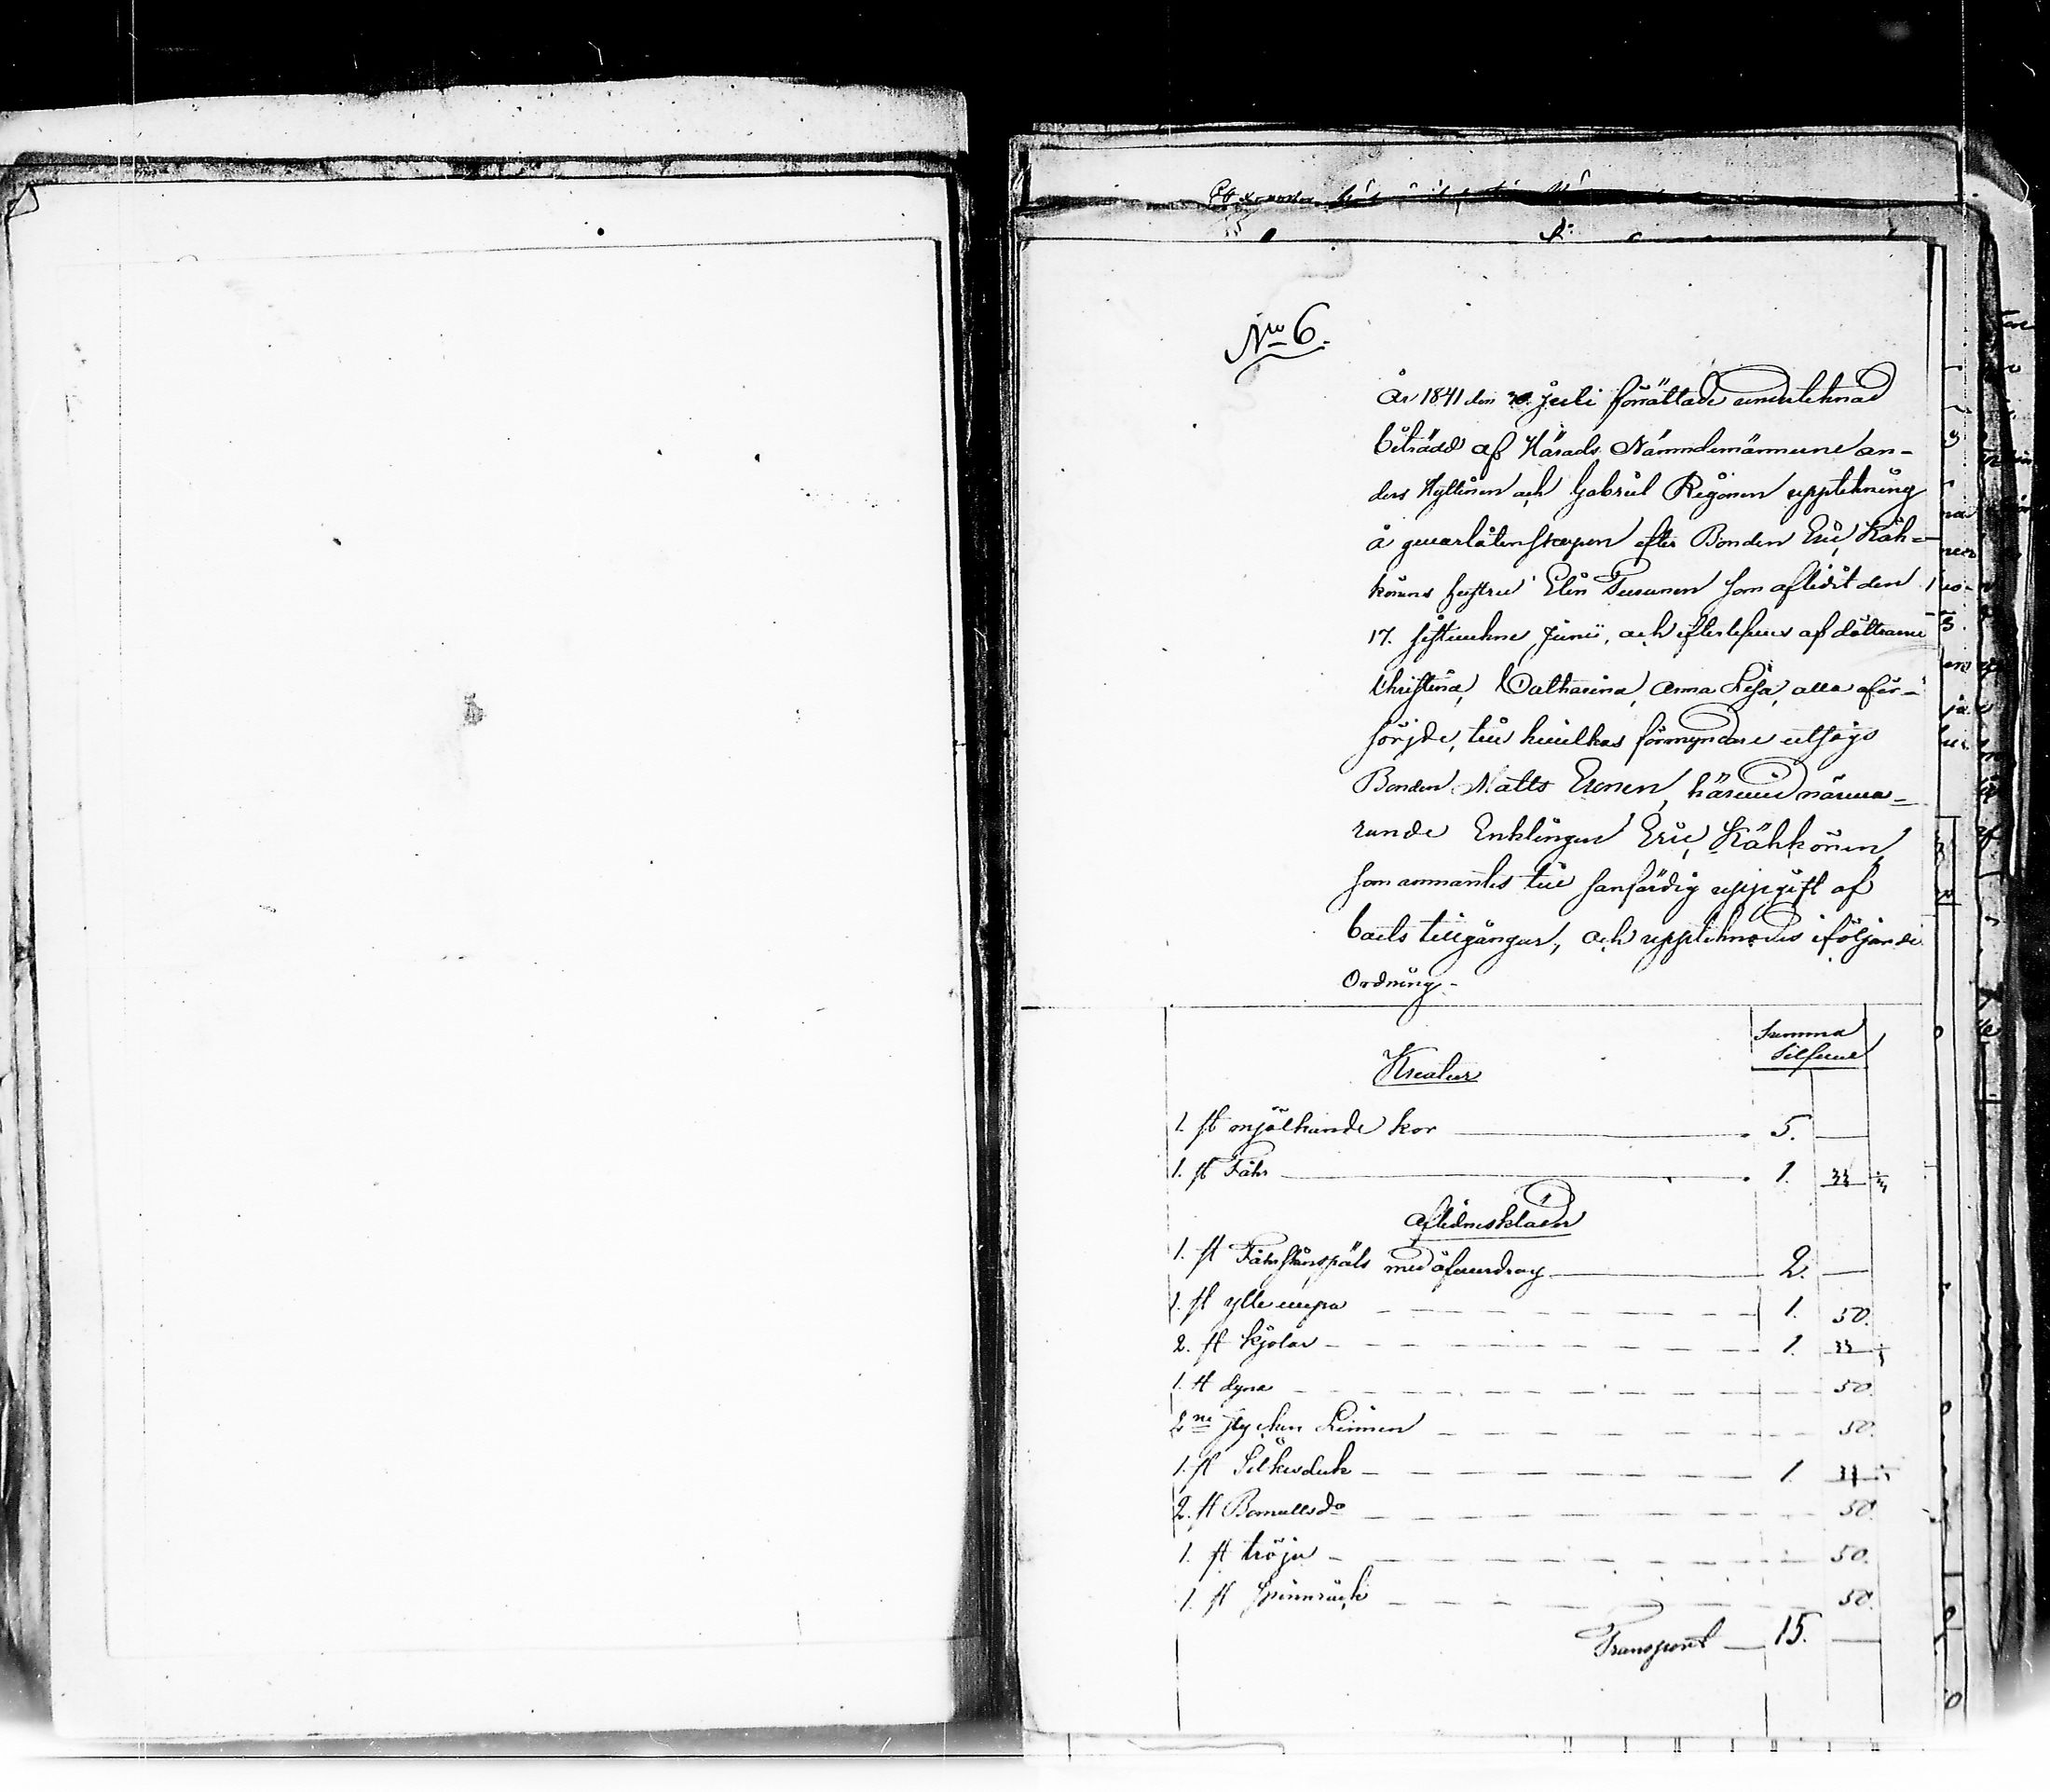 No 6.
År 1841 den 30. Juli förrättade underteknad
biträdd af Härads Nämndemännerne An-
ders Hyttinen och Gabriel Rigonen upptekning
å qvarlåtenskapen efter Bonden Eric Käh-
könens hustru Elin Tuunen som aflidit den
17. sistvekne Junii, och efterlefves af döttrarne
Christina, Catharina, Anna Lisa, alla oför-
sörjde, till hvilkas förmyndare utsågs
Bonden Matts Eronen, härvid närva-
rande Enklingen Eric Kähkönen
som anmantes till sanfärdig uppgift af
boets tillgångar, och uppteknades i följande
Ordning.-
Summa
Silfver
Kreatur
1. st mjölkande kor 5. —
1. st Fåhr 1. 33 1/3
Aflidnes kläder
1. st Fåhrskinspäls med öfverdrag 2. —
1. st ylle 1. 50.
2. st kjolar 1. 33 1/3
1. st dyna 50.
2ne stycken Linnen 50.
1. st Silkesduk 1. 33 1/3
2. st Bomulls do 50.
1. st tröja 50.
1. st Spinnrock 50.
Transport 15. —